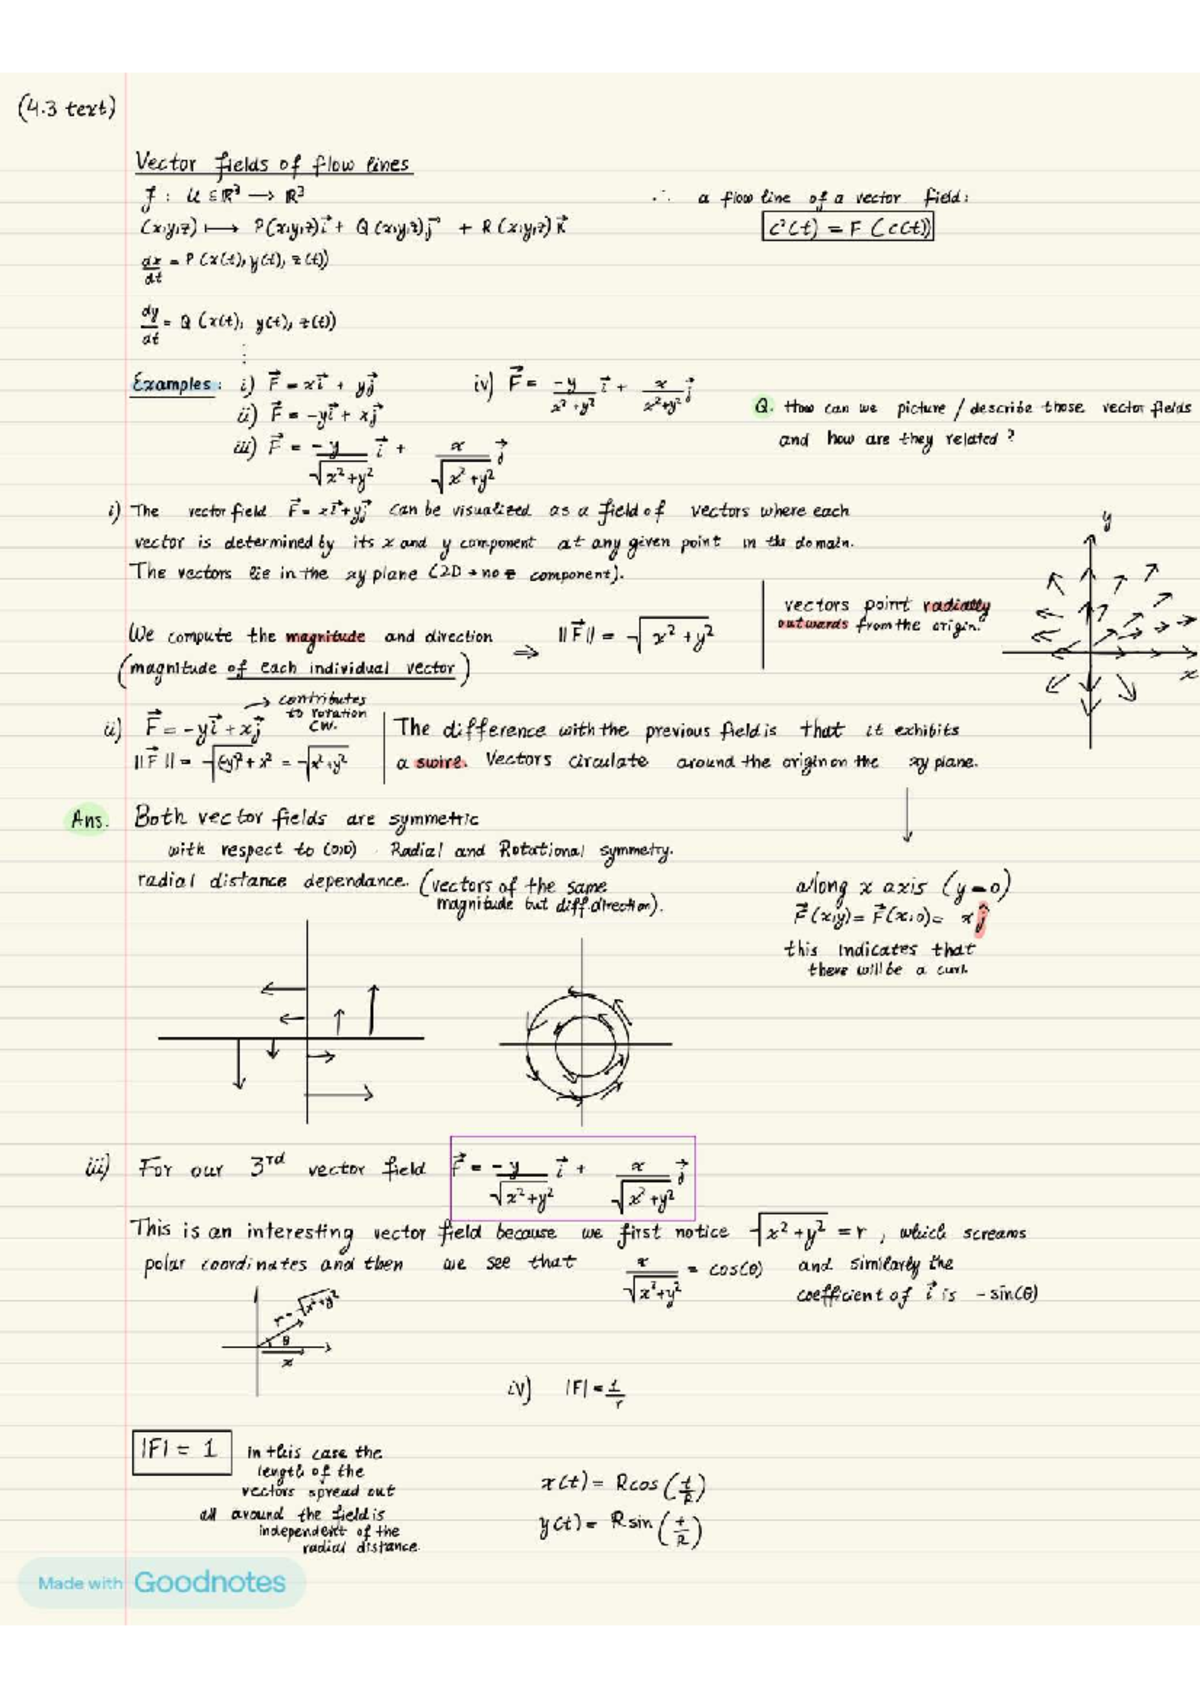 (4.3 text)
Vector fields of flow lines
f : U ⊆ ℝ³ → ℝ³
(x,y,z) ⟼ P(x,y,z)i⃗ + Q(x,y,z)j⃗ + R(x,y,z)k⃗
dx/dt = P(x(t), y(t), z(t))
dy/dt = Q(x(t), y(t), z(t))
⋮
∴ a flow line of a vector field:
c'(t) = F(c(t))
Examples: i) F⃗ = xi⃗ + yj⃗
ii) F⃗ = -yi⃗ + xj⃗
iii) F⃗ = -y/√(x²+y²) i⃗ + x/√(x²+y²) j⃗
iv) F⃗ = -y/(x²+y²) i⃗ + x/(x²+y²) j⃗
Q. How can we picture / describe those vector fields
and how are they related?
i) The vector field F⃗ = xi⃗+yj⃗ can be visualized as a field of vectors where each
vector is determined by its x and y component at any given point in the domain.
The vectors lie in the xy plane (2D → no z component).
We compute the magnitude and direction
(magnitude of each individual vector)
⇒ ||F⃗|| = √(x²+y²)
vectors point radially
outwards from the origin.
y
x
ii) F⃗ = -yi⃗ + xj⃗
→ contributes
to rotation
CW.
||F⃗|| = √((-y)²+x²) = √(x²+y²)
The difference with the previous field is that it exhibits
a swire. Vectors circulate around the origin on the xy plane.
Ans. Both vector fields are symmetric
with respect to (0,0) . Radial and Rotational symmetry.
radial distance dependance. (vectors of the same
magnitude but diff. direction).
along x axis (y=0)
F⃗(x,y) = F⃗(x,0) = xĵ
this indicates that
there will be a curl.
iii) For our 3rd vector field F⃗ = -y/√(x²+y²) i⃗ + x/√(x²+y²) j⃗
This is an interesting vector field because we first notice √(x²+y²) = r, which screams
polar coordinates and then we see that x/√(x²+y²) = cos(θ) and similarly the
coefficient of i⃗ is -sin(θ)
r = √(x²+y²)
θ
x
iv) |F| = 1/r
|F| = 1
in this case the
length of the
vectors spread out
all around the field is
independent of the
radial distance.
x(t) = R cos(t/R)
y(t) = R sin(t/R)
Made with Goodnotes